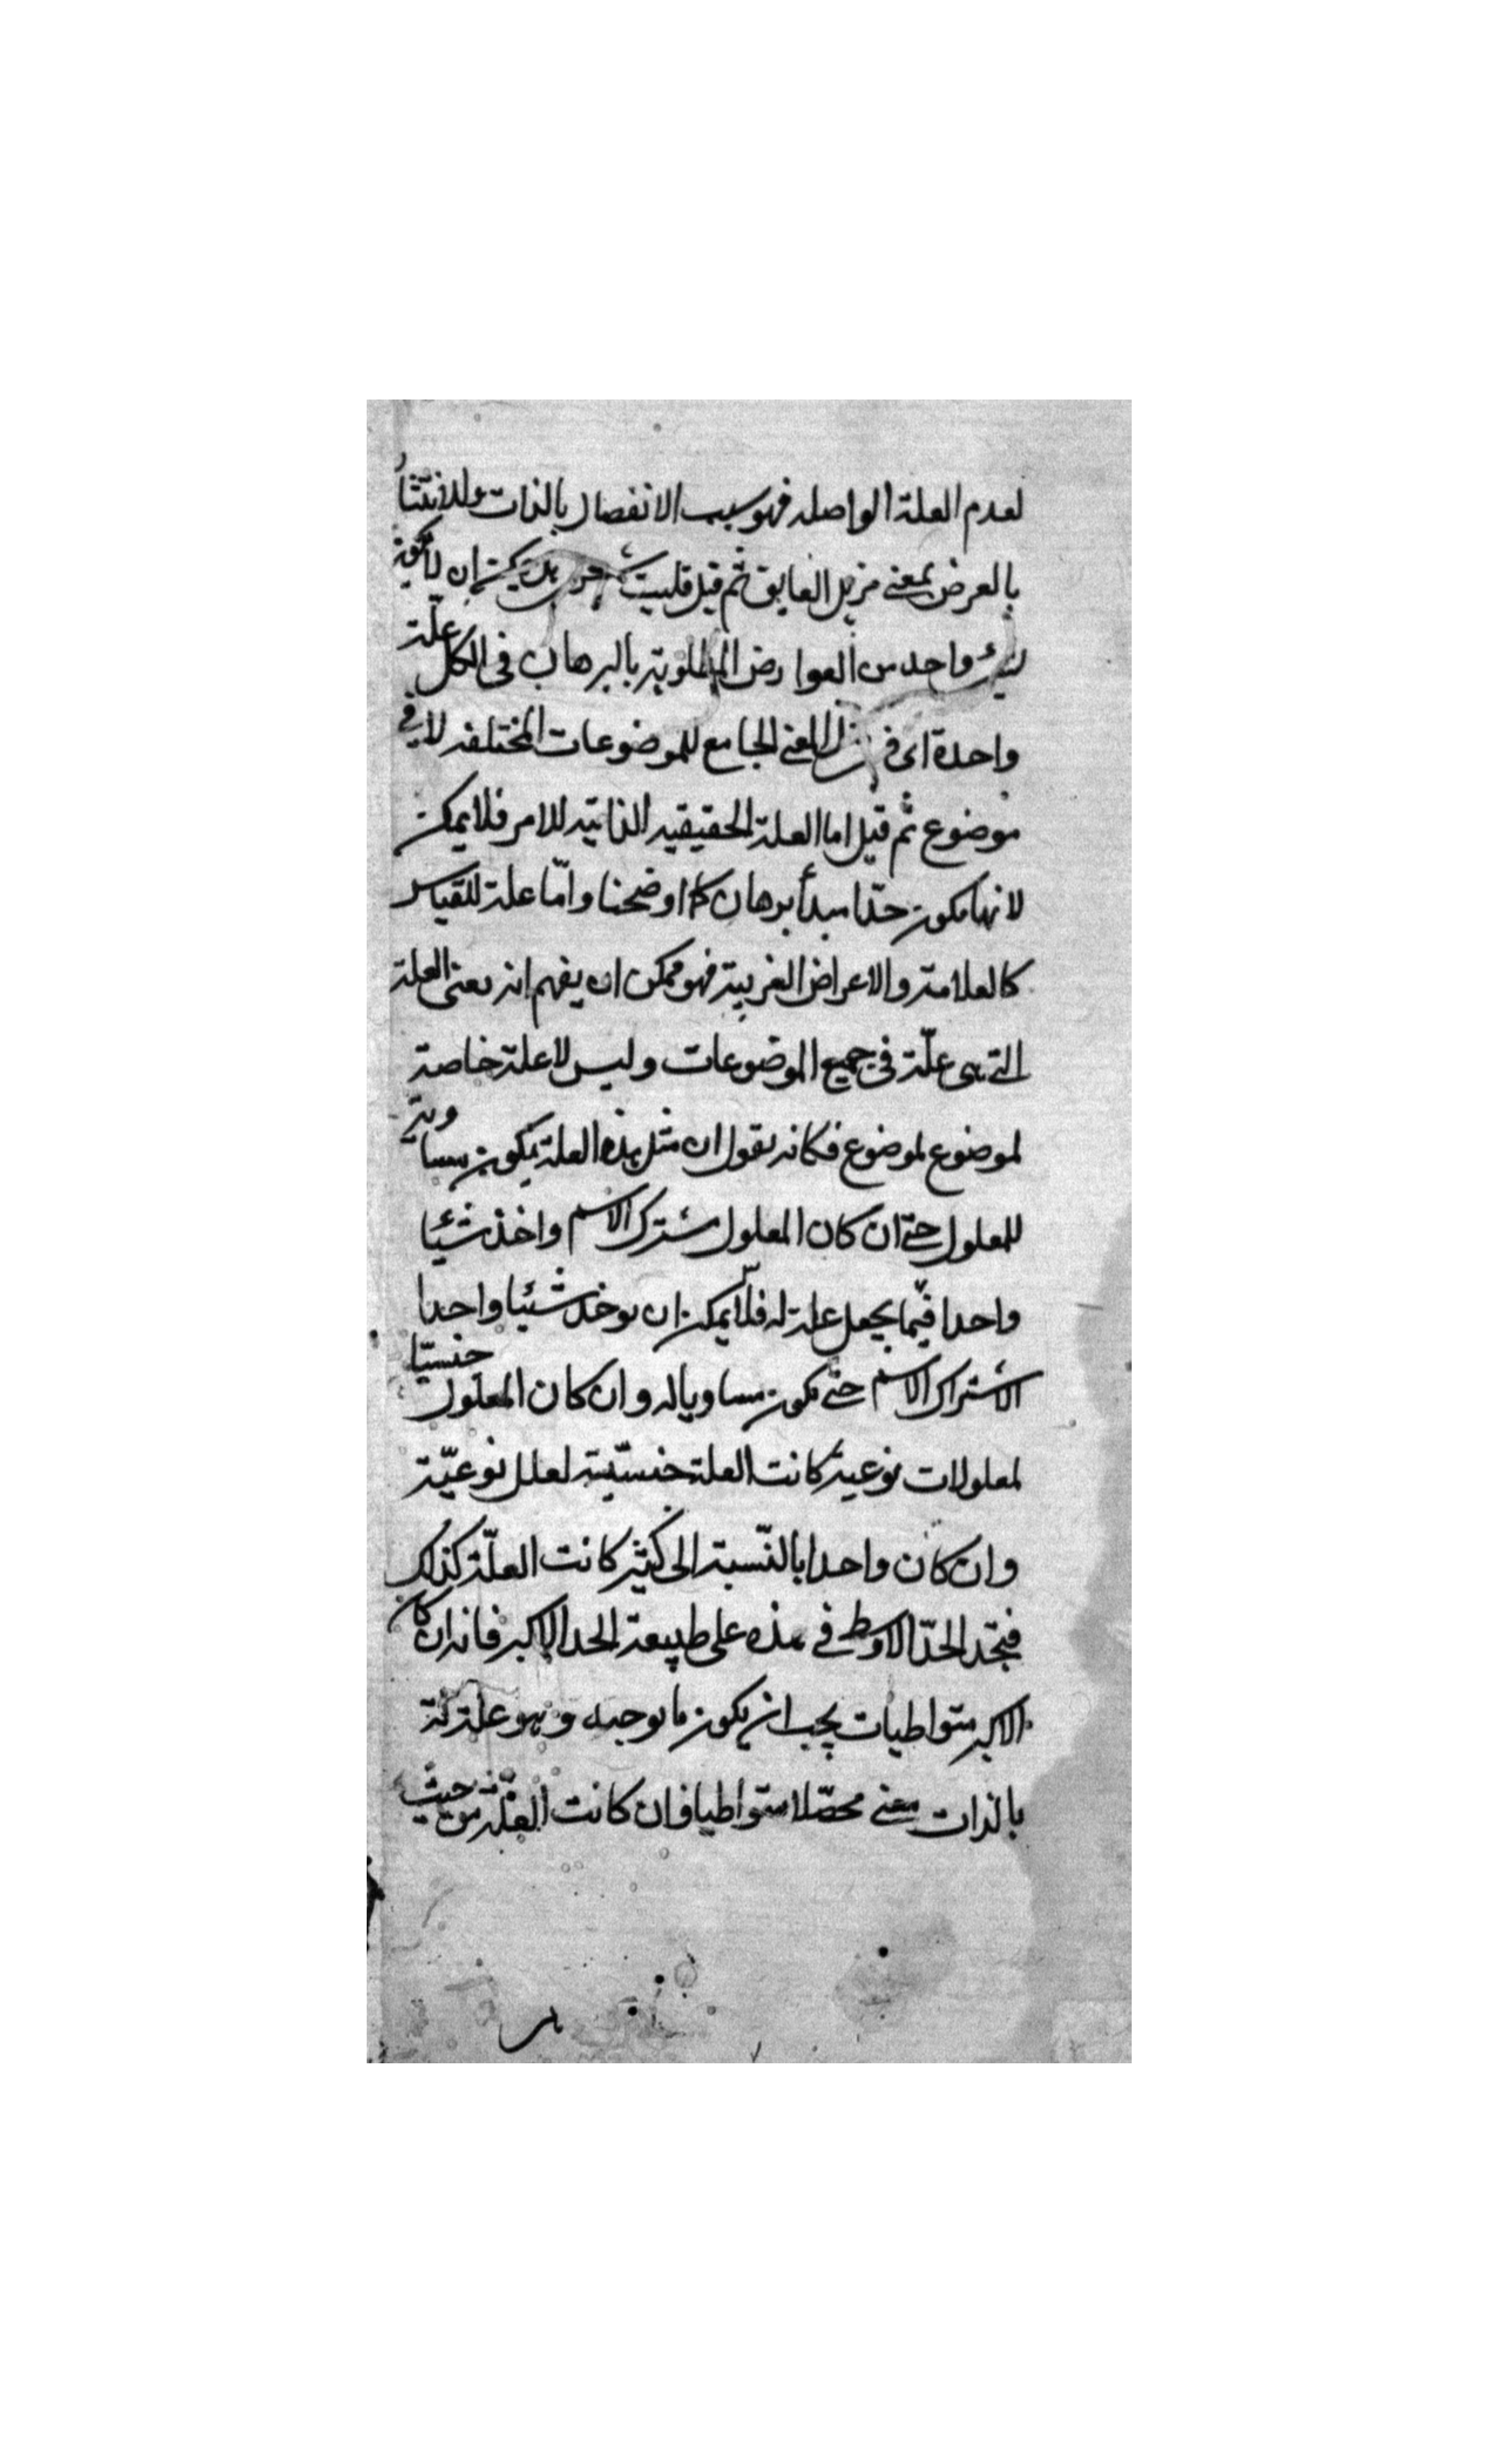 لعدم العلة الواصله فهو سبب الانفصال بالذات وللانتثار
بالعرض بمعنى مزيل العايق ثم قيل فليت شعرى هل يمكن ان يكون
لشىء واحد من العوارض المطلوبة بالبرهان فى الكل علة
واحدة اى فى المعنى الجامع للموضوعات المختلفه لا فى
موضوع ثم قيل اما العلة الحقيقيه الذاتيه للامر فلا يمكن
لانها تكون حدّا مبدأ برهان كما اوضحنا وامّا علة للقياس
كالعلامة والاعراض الغريبة فهو ممكن ان يفهم انه يعنى العلة
التى هى علّة فى جميع الموضوعات وليس لا علة خاصة
لموضوع لموضوع فكانه يقول ان مثل هذه العلة يكون مساوية
للمعلول حتى ان كان المعلول مشترك الاسم واخذ شيئا
واحدا فيما يجعل علة له فلا يمكن ان يوخذ شيئا واحدا
الا شتراك الاسم حتى يكون مساويا له وان كان المعلول جنسيّا
لمعلولات نوعية كانت العلة جنسيّة لعلل نوعيّة
وان كان واحدا بالنّسبة الى كثير كانت العلّة كذلك
فتجد الحدّ الاوسط فى هذه على طبيعة الحد الاكبر فانه ان كان
الاكبر متواطيات يجب ان يكون ما يوجبه وهو علة له
بالذات معنى محصّلا متواطيا فان كانت العلّة من حيث